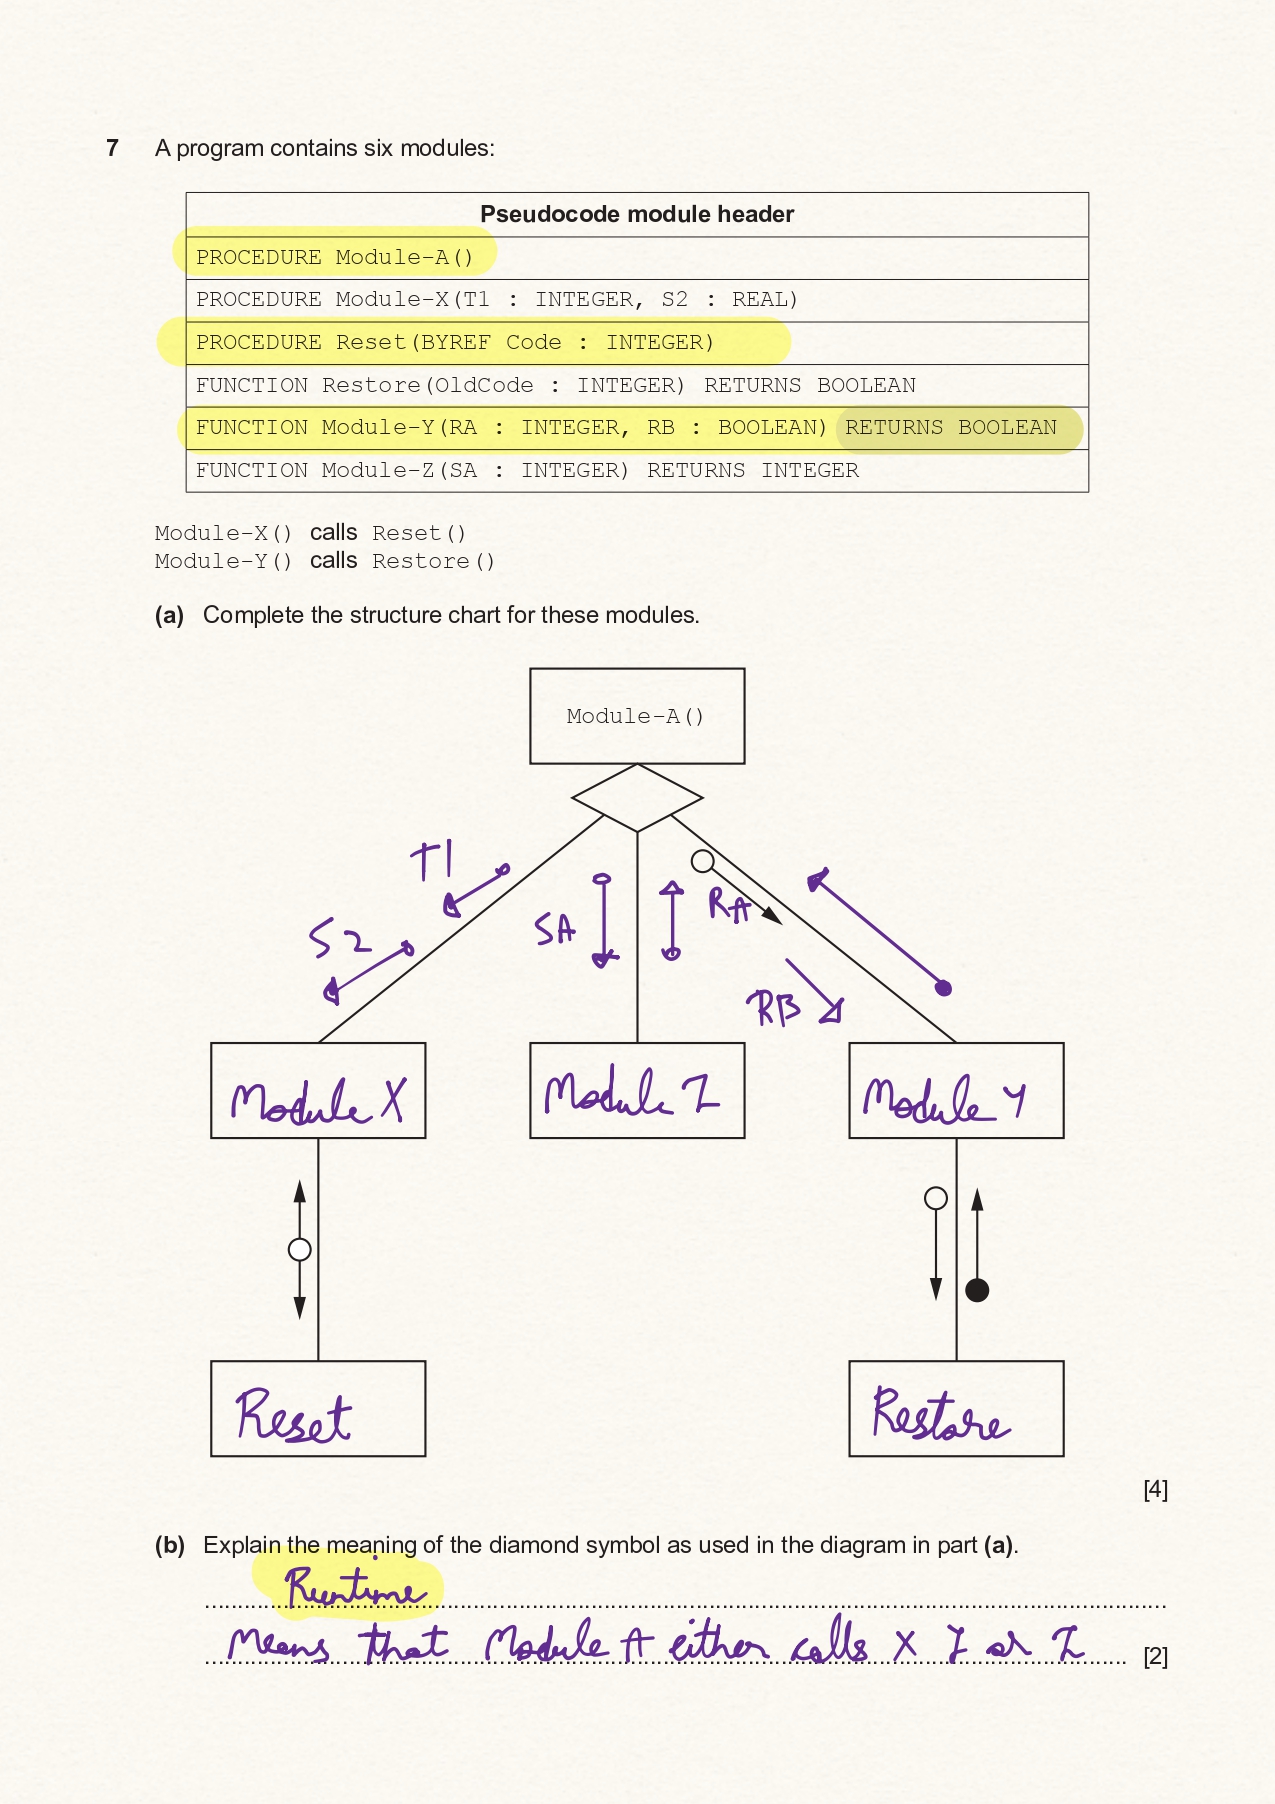 7 A program contains six modules:
Pseudocode module header
PROCEDURE Module-A()
PROCEDURE Module-X(T1 : INTEGER, S2 : REAL)
PROCEDURE Reset(BYREF Code : INTEGER)
FUNCTION Restore(OldCode : INTEGER) RETURNS BOOLEAN
FUNCTION Module-Y(RA : INTEGER, RB : BOOLEAN) RETURNS BOOLEAN
FUNCTION Module-Z(SA : INTEGER) RETURNS INTEGER
Module-X() calls Reset()
Module-Y() calls Restore()
(a) Complete the structure chart for these modules.
Module-A()
T1
S2
SA
RA
RB
Module X
Module Z
Module Y
Reset
Restore
[4]
(b) Explain the meaning of the diamond symbol as used in the diagram in part (a).
Runtime
Means that Module A either calls X Y or Z [2]